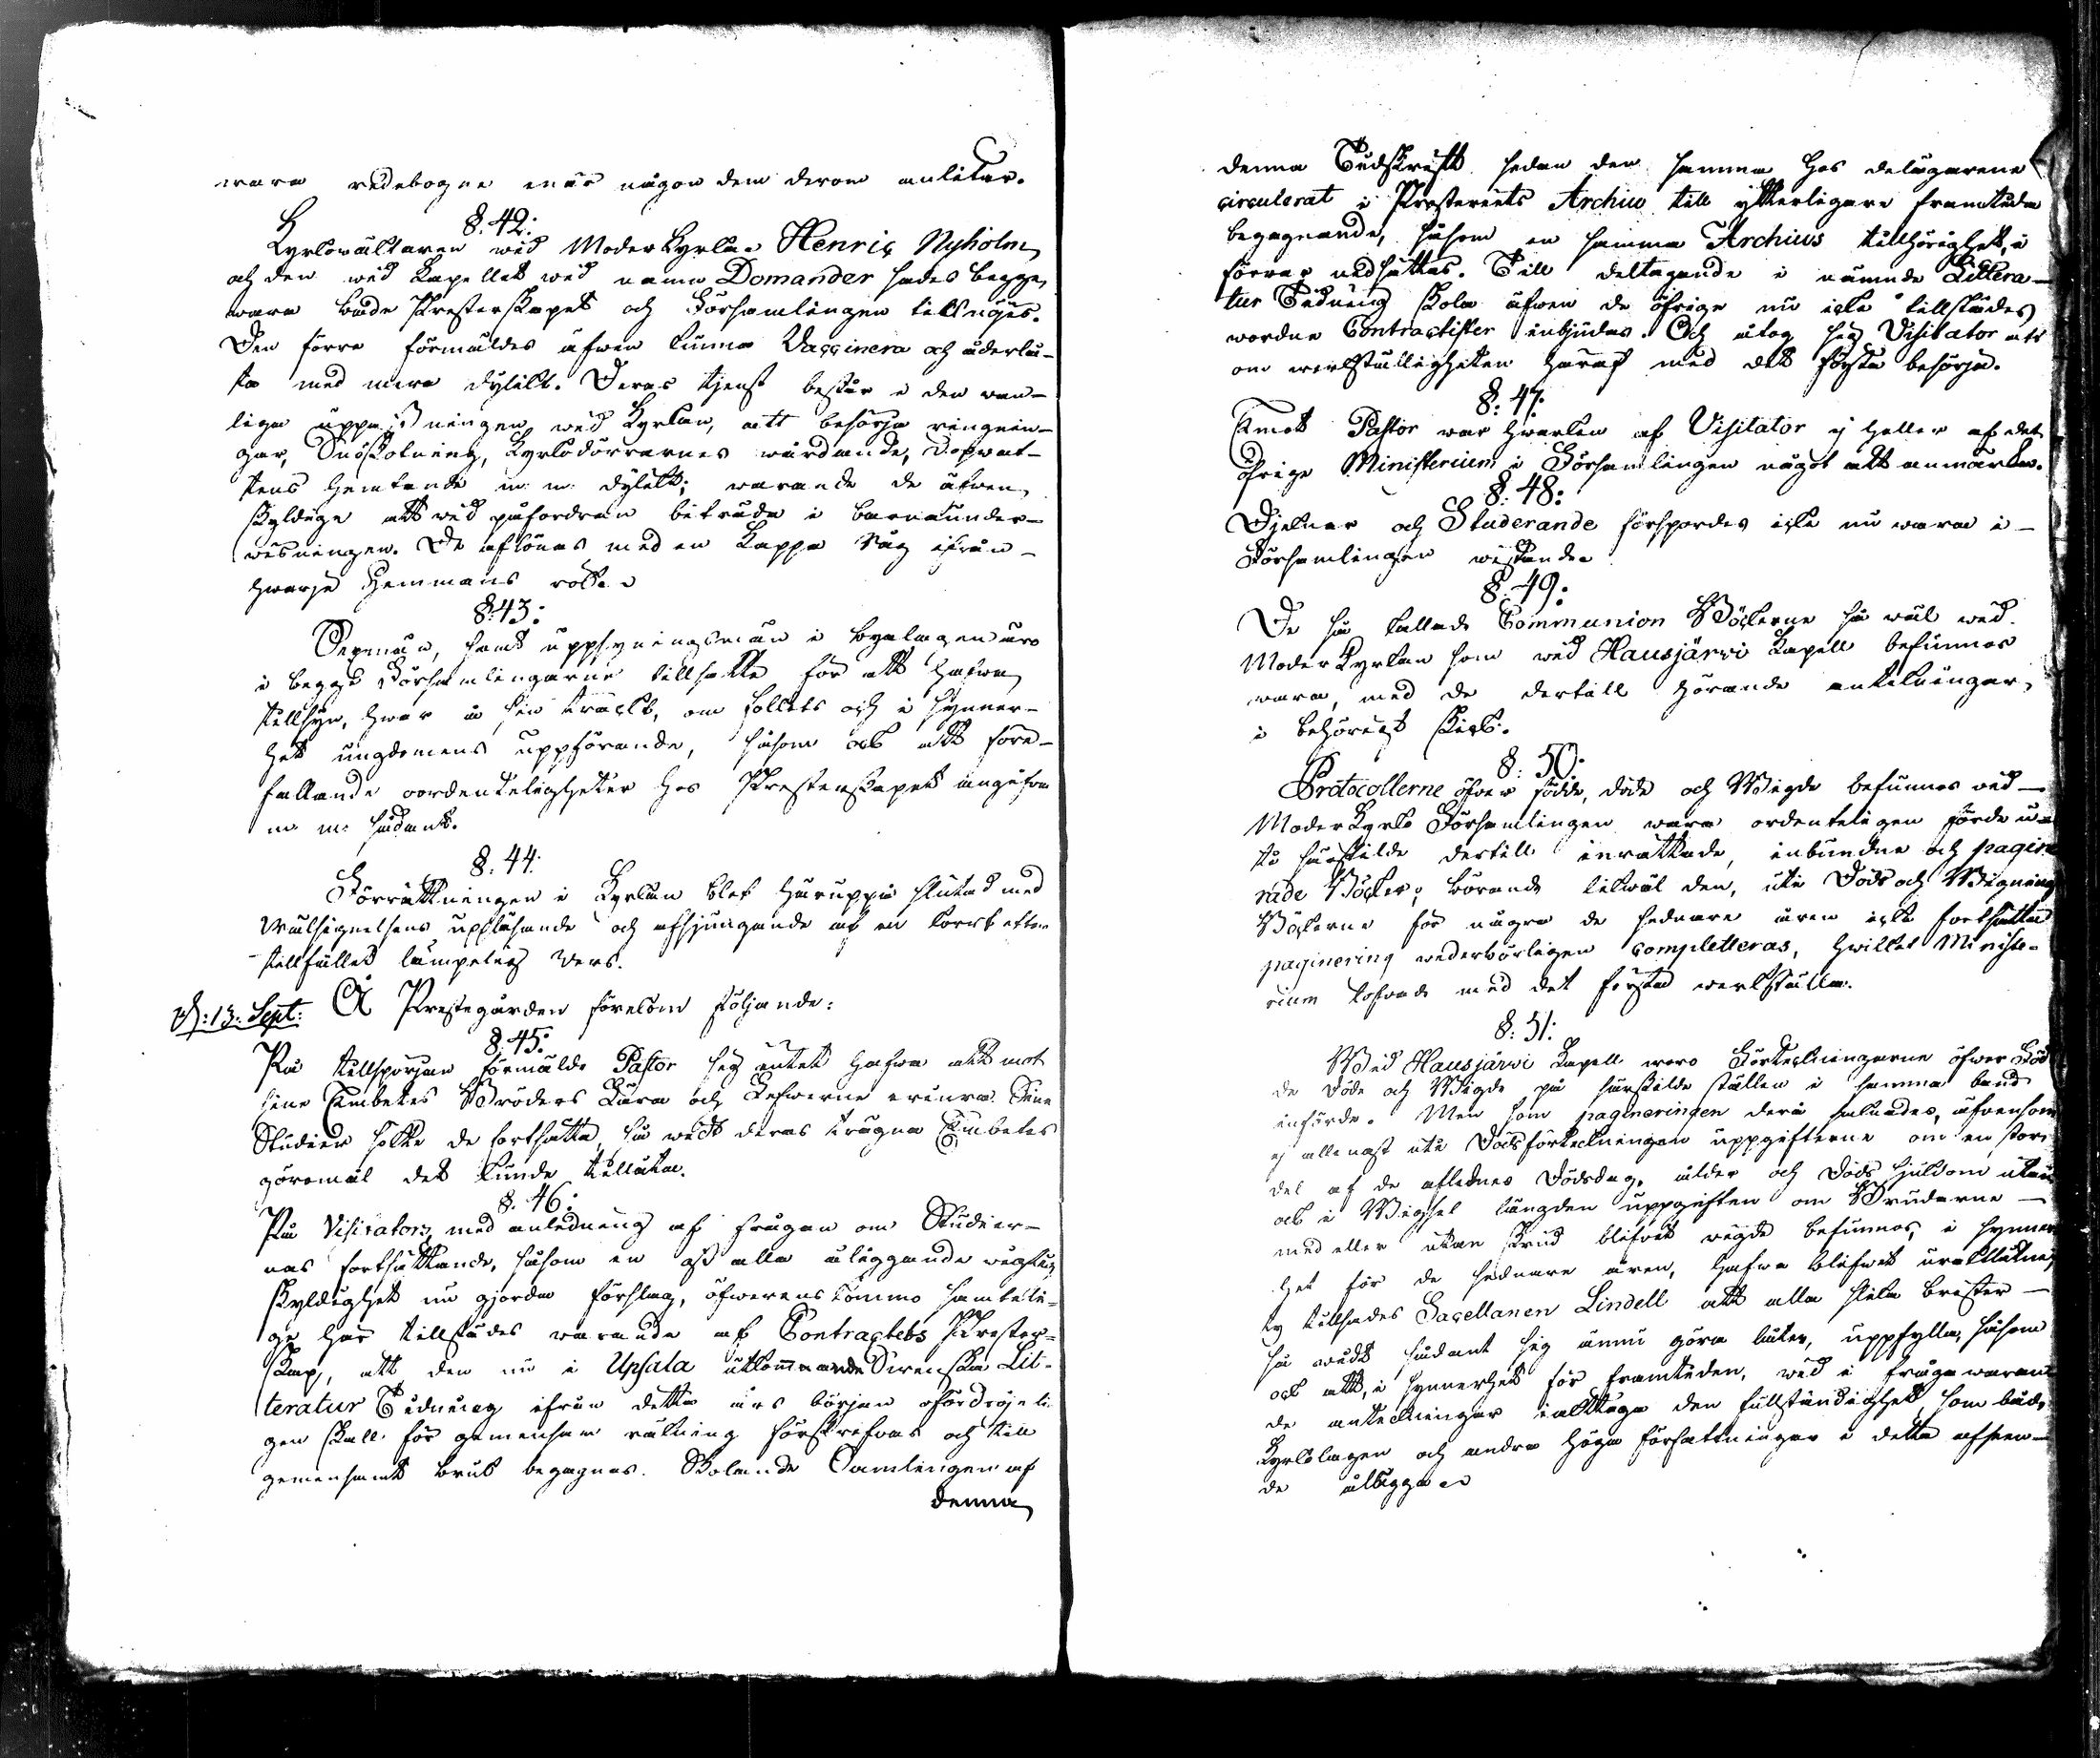 wara redebogne enär någon dem derom anlitar.
§. 42:
Kyrkowäktaren wid Moder Kyrkan Henric Nyholm
och den wid Kapellet wid namn Domander sades begge
wara både Presterskapet och Församlingen till nöjes.
Den förre förmäldes äfwen kunna Vaccinera och åderlå-
ta med mera dylikt. Deras tjenst består i den wan-
liga uppassningen wid Kyrkan, att besörja ringnin-
gar, Snöskotning, Kyrkodörrarnes wårdande, Dopwat-
tens hemtande m. m. dylikt; warande de äfwen
skyldige att wid påfordran biträda i barnaunder-
wisningen. De aflönas med en Kappa Råg ifrån
hwarje Hemmans rök.
§. 43:
Sexmän, samt uppsyningsmän i byalagen äro
i begge Församlingarne tillsatte för att hafwa
tillsyn, hwar i sin trackt, om folkets och i synner-
het ungdomens uppförande, såsom ock att före-
fallande oordenteligheter hos Presterskapet angifwa
m. m. sådant.
§. 44:
Förrättningen i Kyrkan blef häruppå slutad med
Wälsignelsens uppläsande och afsjungande af en kort efter
tillfället lämpelig Vers.
D: 13: Sept: Å Prestegården förekom följande:
§. 45:
På tillspörjan förmälde Pastor sig intet hafwa att mot
sine Embetes Bröders Lära och Lefwerne erinra. Sine
Studier sökte de fortsätta, så widt deras trägna Embetes
göromål det kunde tillåta.
§. 46:
På Visitators, med anledning af frågan om Studier-
nas fortsättande, såsom en oss alla åliggande wigtig
skyldighet nu gjorda förslag, öfwerens kommo samteli-
ge här tillstädes warande af Contractets Prester-
skap, att den nu i Upsala utkommande Swenska Lit-
teratur Tidning ifrån detta års början ofördröjeli-
gen skall för gemensam räkning förskrifvas och till
gemensamt bruk begagnas. Skolande Samlingen af
denna
denna Tidskrift sedan den samma hos delägarene
circulerat i Prosteriets Archiv till ytterligare framtida
begagnande, såsom en samma Archivs tillhörighet, i
förvar nedsättas. Till deltagande i nämnde Littera-
tur Tidning skola äfwen de öfrige nu icke tillstädes
wordne Contractister inbjudas. Och åtog sig Visitator att
om werkställigheten häraf med det första besörja.
§. 47:
Emot Pastor war hwarken af Visitator ej heller af det
öfrige Ministerium i Församlingen något att anmärka.
§. 48:
Djeknar och Studerande förspordes icke nu wara i
Församlingen wistande.
§. 49:
De så kallade Communion Böckerne så wäl wid
Moder Kyrkan som wid Hausjärwi Kapell befunnos
wara, med de dertill hörande anteckningar,
i behörigt skick.
§. 50:
Protocollerne öfwer födde, döde och Wigde befunnos wid
Moder Kyrko Församlingen wara ordenteligen förde u-
ti särskilde dertill inrättade, inbundne och pagine
rade Böcker; börande likwäl den, uti Döds och Wignings
Böckerne för några de sednare åren icke fortsatta
paginering wederbörligen completteras, hwilket Ministe-
rium lofwade med det första werkställa.
§. 51:
Wid Hausjärwi Kapell woro Förteckningarne öfwer Föd
de Döde och Wigde på särskilde ställen i samma band
införde. Men som pagineringen deri saknades, äfwensom
ej allenast uti Dödsförteckningen uppgifterne om en stor
del af de aflednes Dödsdag, ålder och Döds sjukdom utan
ock i Wigsel längden uppgiften om Brudarne
med eller utan skrud blifwit wigde befunnos, i synner
het för de sednare åren, hafwa blifwit uraktlåtne,
ty tillsades Sacellanen Lindell att alla slika brister
så widt sådant sig ännu göra låter, uppfylla, såsom
ock att, i synnerhet för framtiden, wid i fråga waran
de anteckningar iakttaga den fullständighet som både
Kyrkolagen och andra höga författningar i detta afseen-
de ålägga.